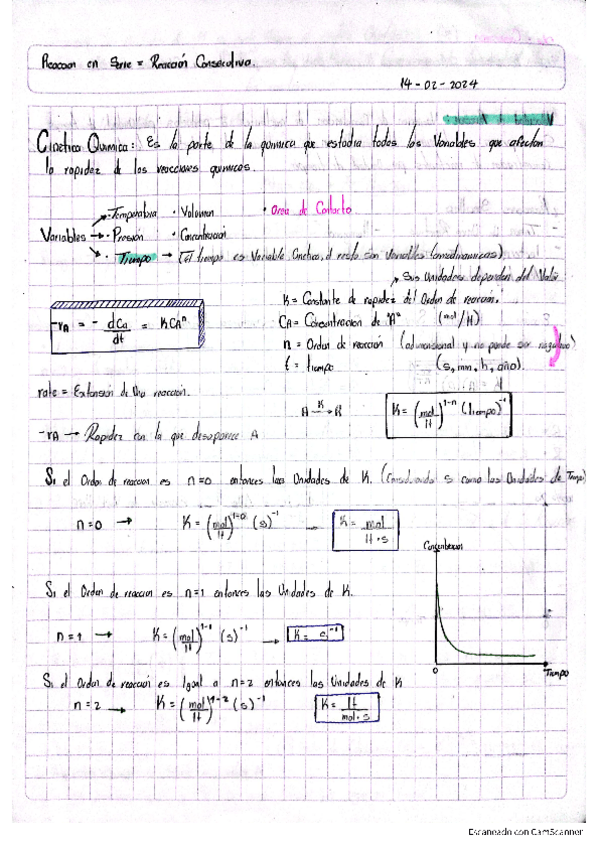 Reaccion en Serie = Reacción Consecutiva.
14-02-2024
Cinetica Quimica: Es la parte de la quimica que estudia todas las Variables que afectan
la rapidez de las reacciones quimicas.
Variables → · Temperatura · Volumen · Area de Contacto
· Presión · Concentración
· Tiempo → (El tiempo es Variable Cinetica, el resto son Variables termodinamicas).
→ Sus Unidades dependen del Valor
K = Constante de rapidez del Orden de reaccion.
-rA = - dCa/dt = KCAⁿ
CA = Concentracion de "A" (mol/lt)
n = Orden de reacción (adimensional y no puede ser negativo)
t = tiempo (s, min, h, año).
rate = Extensión de una reaccion.
A –K→ R
K = (mol/lt)^1-n (tiempo)^-1
-rA → Rapidez con la que desaparece A
Si el Orden de reaccion es n=0 entonces las Unidades de K. (Considerando s como las Unidades de Tiempo)
n=0 → K = (mol/lt)^1-0 (s)^-1 → K = mol/lt·s
Concentracion
Si el Orden de reaccion es n=1 entonces las Unidades de K.
n=1 → K = (mol/lt)^1-1 (s)^-1 → K = s^-1
0
Tiempo
Si el Orden de reaccion es Igual a n=2 entonces las Unidades de K
n=2 → K = (mol/lt)^1-2 (s)^-1 K = lt/mol·s
Escaneado con CamScanner